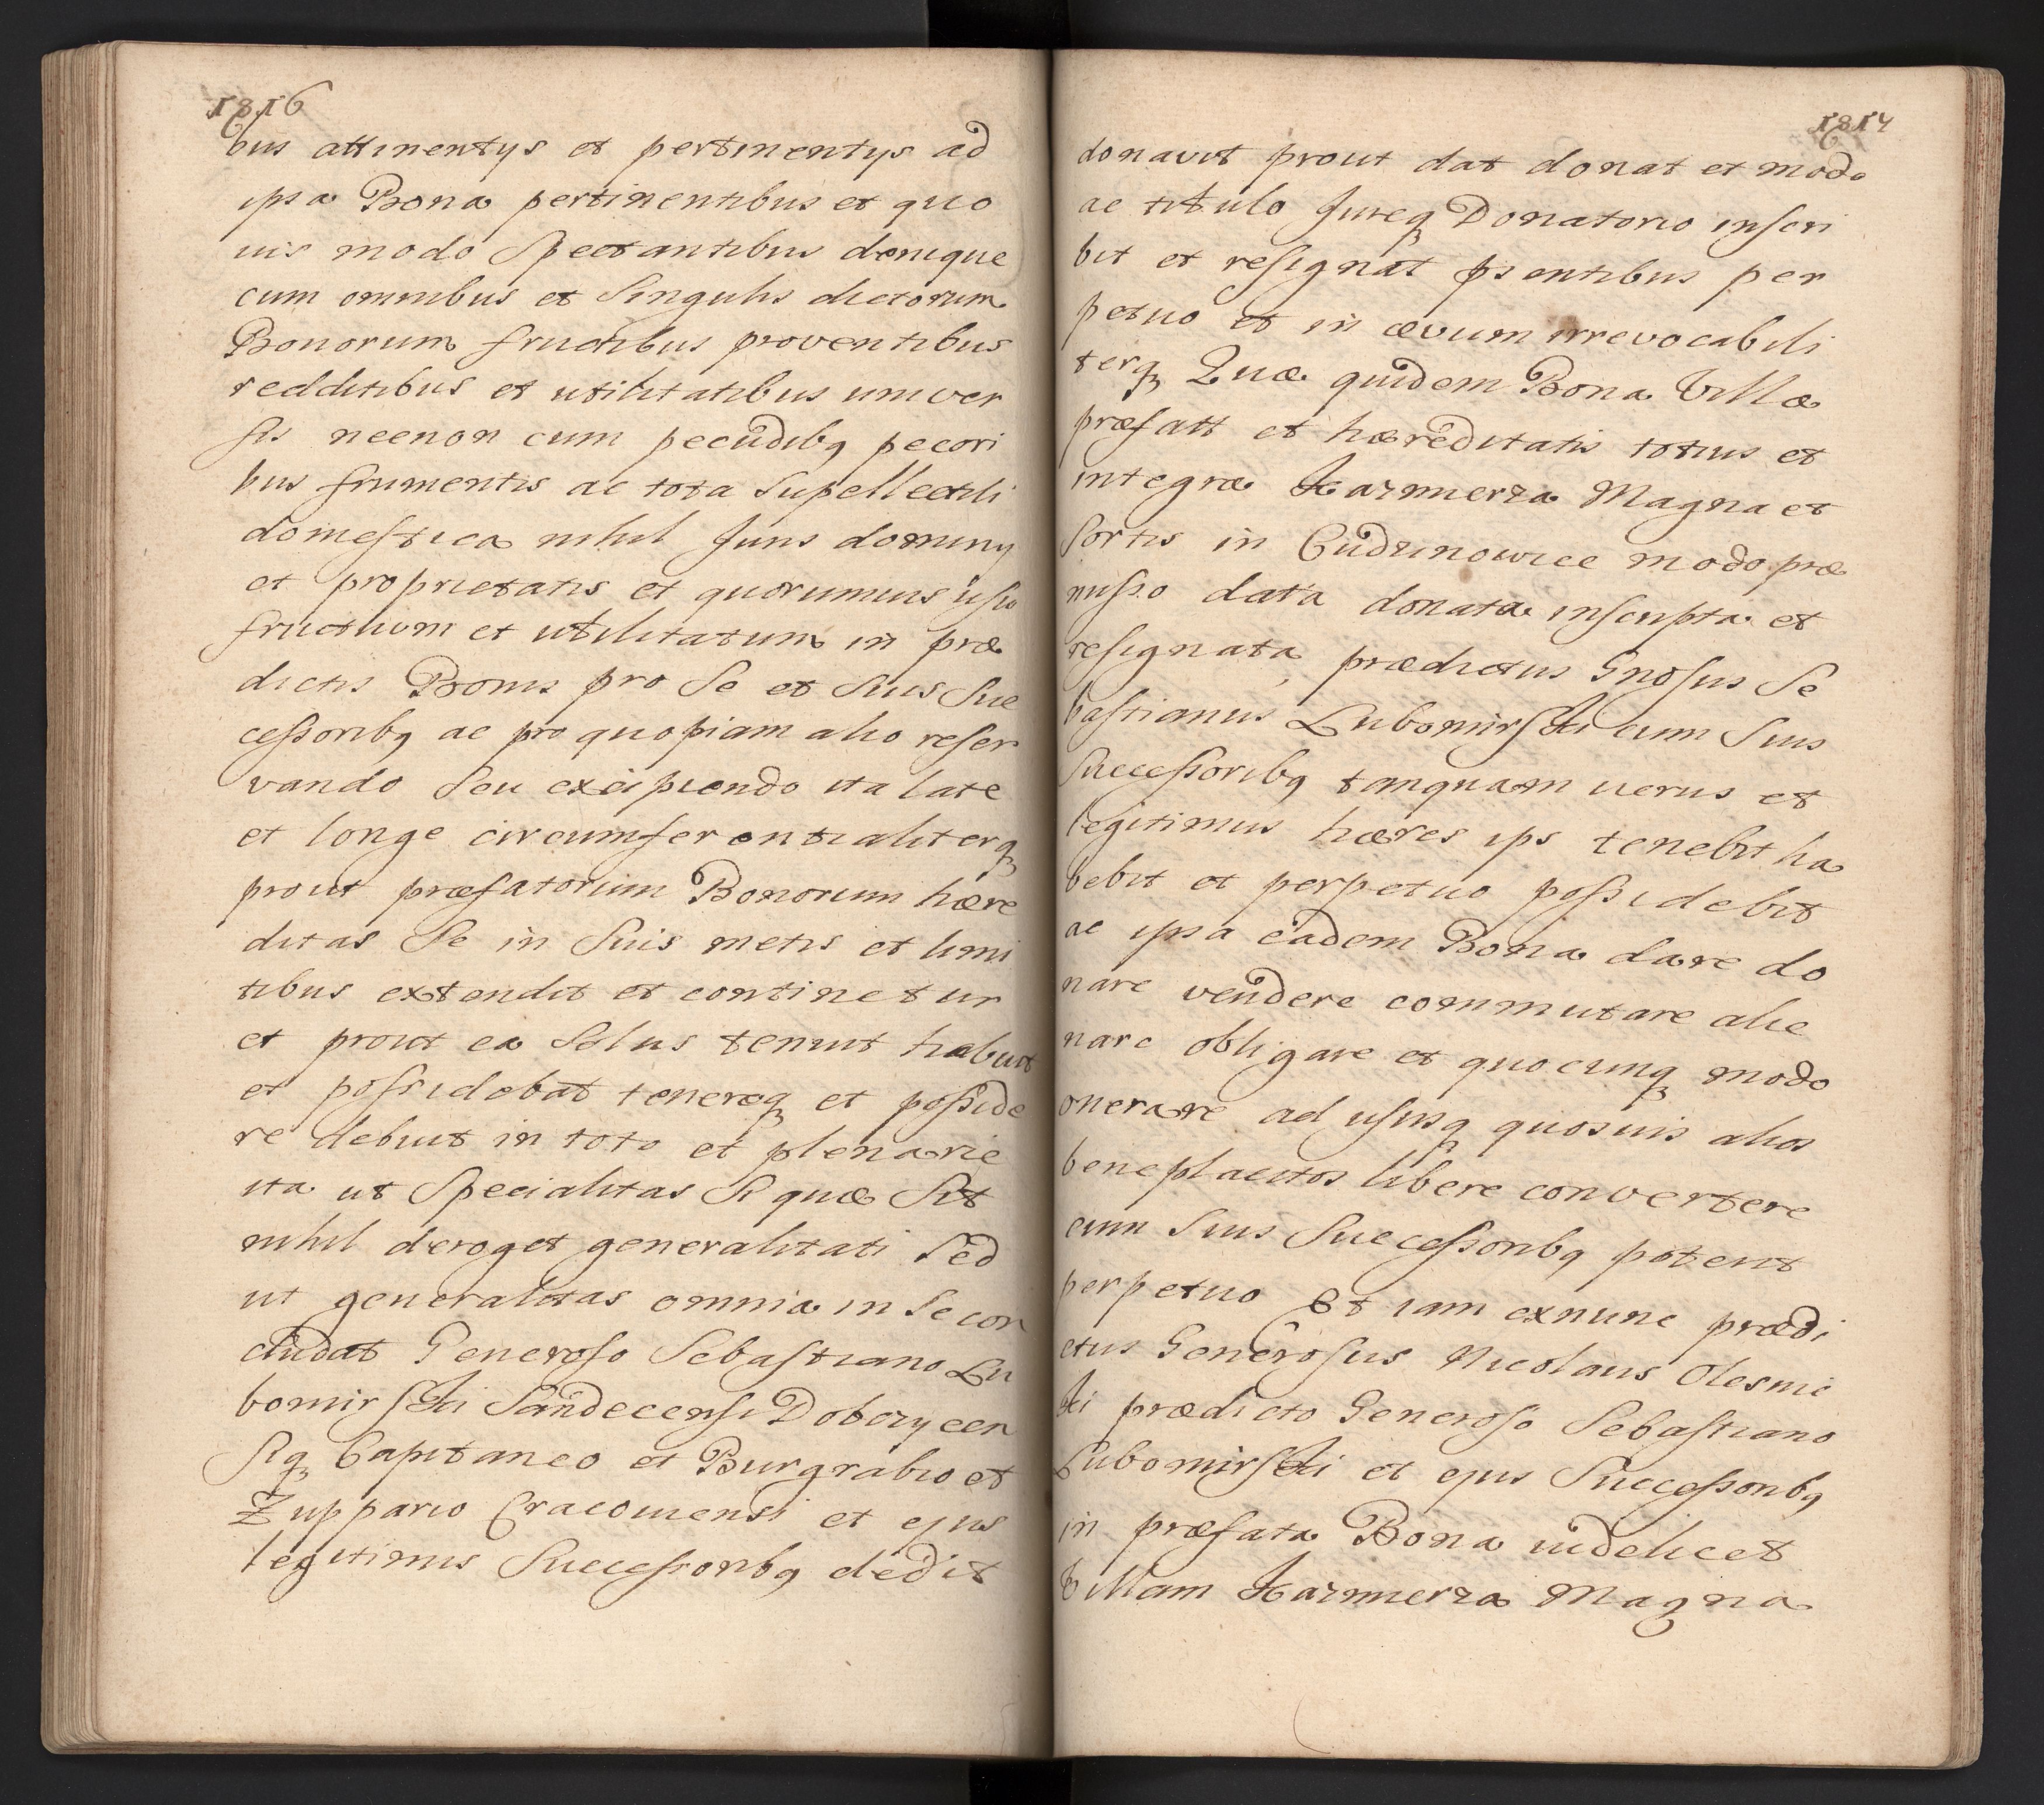 1816
bus attinentijs et pertinentijs ad
ipsa Bona pertinentibus et quo
uis modo Spectantibus denique
cum omnibus et Singulis dictorum
Bonorum fructibus proventibus
redditibus et utilitatibus univer
sis necnon cum pecudibq pecori
bus frumentis ac tota Supellectili
domestica nihil Juris dominij
et proprietatis et quorumuis usu
fructuum et utilitatum in præ
dictis Bonis pro Se et Suis Suc
cessoribq ac pro quopiam alio reser
vando Seu excipiendo ita late
et longe circumferentialiterq
prout præfatorum Bonorum hære
ditas Se in Suis metis et limi
tibus extendit et continetur
et prout ea Solus tenuit habuit
et possidebat tenereq et posside
re debuit in toto et plenarie
ita ut Specialitas Si quæ Sit
nihil deroget generalitati Sed
ut generalitas omnia in Se con
cludat Generoso Sebastiano Lu
bomirski Sandecensi Dobczycen
Siq Capitaneo et Burgrabio et
Zuppario Cracouiensi et ejus
legitimis Successoribq dedit
1817
donavit prout dat donat et modo
ac titulo Jureq Donatorio inscri
bit et resignat psentibus per
petuo et in ævum irrevocabili
terq Quæ quidem Bona Villæ
præfatt et hæreditatis totius et
integræ Kazimierza Magna et
Sortis in Cudzinowice modo præ
misso data donata inscripta et
resignata, prædictus Gnosus Se
bastianus Lubomirski cum Suis
Successoribq tanquam uerus et
legitimus hæres ips tenebit ha
bebit et perpetuo possidebit
ac ipsa eadem Bona dare do
nare vendere commutare alie
nare obligare et quocunq modo
onerare ad ususq quosuis alios
beneplacitos libere convertere
cum Suis Successoribq poterit
perpetuo Et iam exnunc prædi
ctus Generosus Nicolaus Olesnic
ki prædicto Generoso Sebastiano
Lubomirski et ejus Successoribq
in præfata Bona uidelicet
Villam Kazimierza Magna